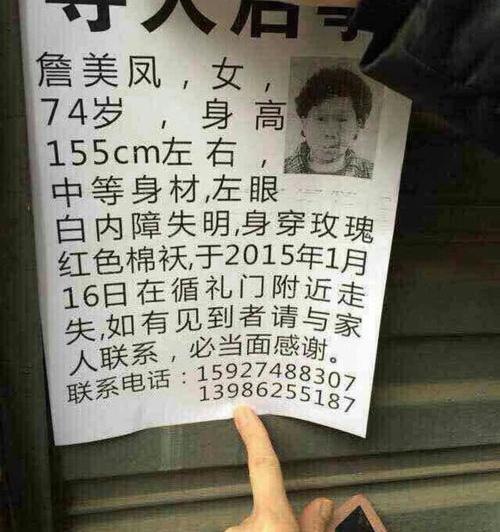 寻人启事
詹美凤，女，
74岁，身高
155cm左右，
中等身材,左眼
白内障失明,身穿玫瑰
红色棉袄,于2015年1月
16日在循礼门附近走
失,如有见到者请与家
人联系，必当面感谢。
联系电话：15927488307
13986255187